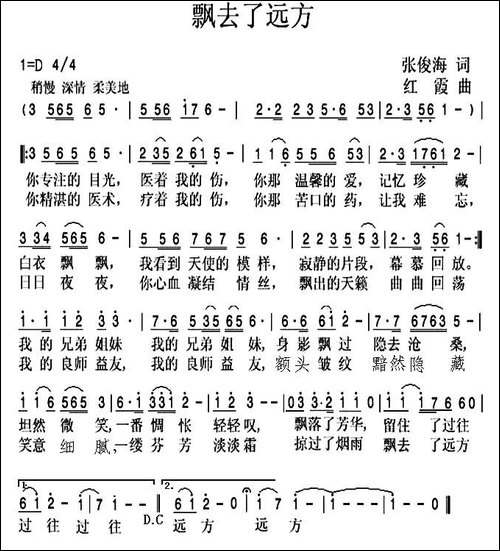 飘去了远方
1=D 4/4
张俊海 词
稍慢 深情 柔美地
红霞 曲
(3 565 65· | 5 56 176 - | 2·2 235·6 53 | 2·3 561 - )|
‖:3 565 65· | 235 261 5 - | 116 55 6 53 | 2·3 1761 2 - |
你专注的 目光， 医着 我的 伤， 你那 温馨的 爱， 记忆 珍 藏
你精湛的 医术， 疗着 我的 伤， 你那 苦口的 药， 让我 难 忘，
334 565 6 - | 5 56 767 5 6 | 223 5 553 | 2·3 561 - :‖
白衣 飘 飘， 我看到 天使的 模 样， 寂静的 片段， 幕慕 回 放。
日日 夜 夜， 你心血 凝结 情 丝， 飘出的 天籁 曲曲 回 荡
1·1 12 33 | 7·6 56535 | 6·6 661 2 | 7·67 6763 5 |
我 的 兄弟 姐妹 我 的 兄弟 姐 妹， 身 影 飘 过 隐去 沧 桑，
我 的 良师 益友， 我 的 良师 益 友， 额头 皱纹 黯然 隐 藏
116 565 35 | 6·1 331 2 - | 112 3 - | 033·5 22 | 112 17660 |
坦然 微 笑， 一番 惆 怅 轻轻 叹， 飘落了 芳华， 留住 了 过往
笑意 细 腻， 一缕 芬 芳 淡淡 霜 掠过了 烟雨 飘去 了 远方
1. 61 2 - 1 | 71 - - :‖ 2. 565 61 2-0 | 17 - 1 - | 1 - - - | 1 - 1 0 ‖
过 往 过 往 D.C 远 方 远 方